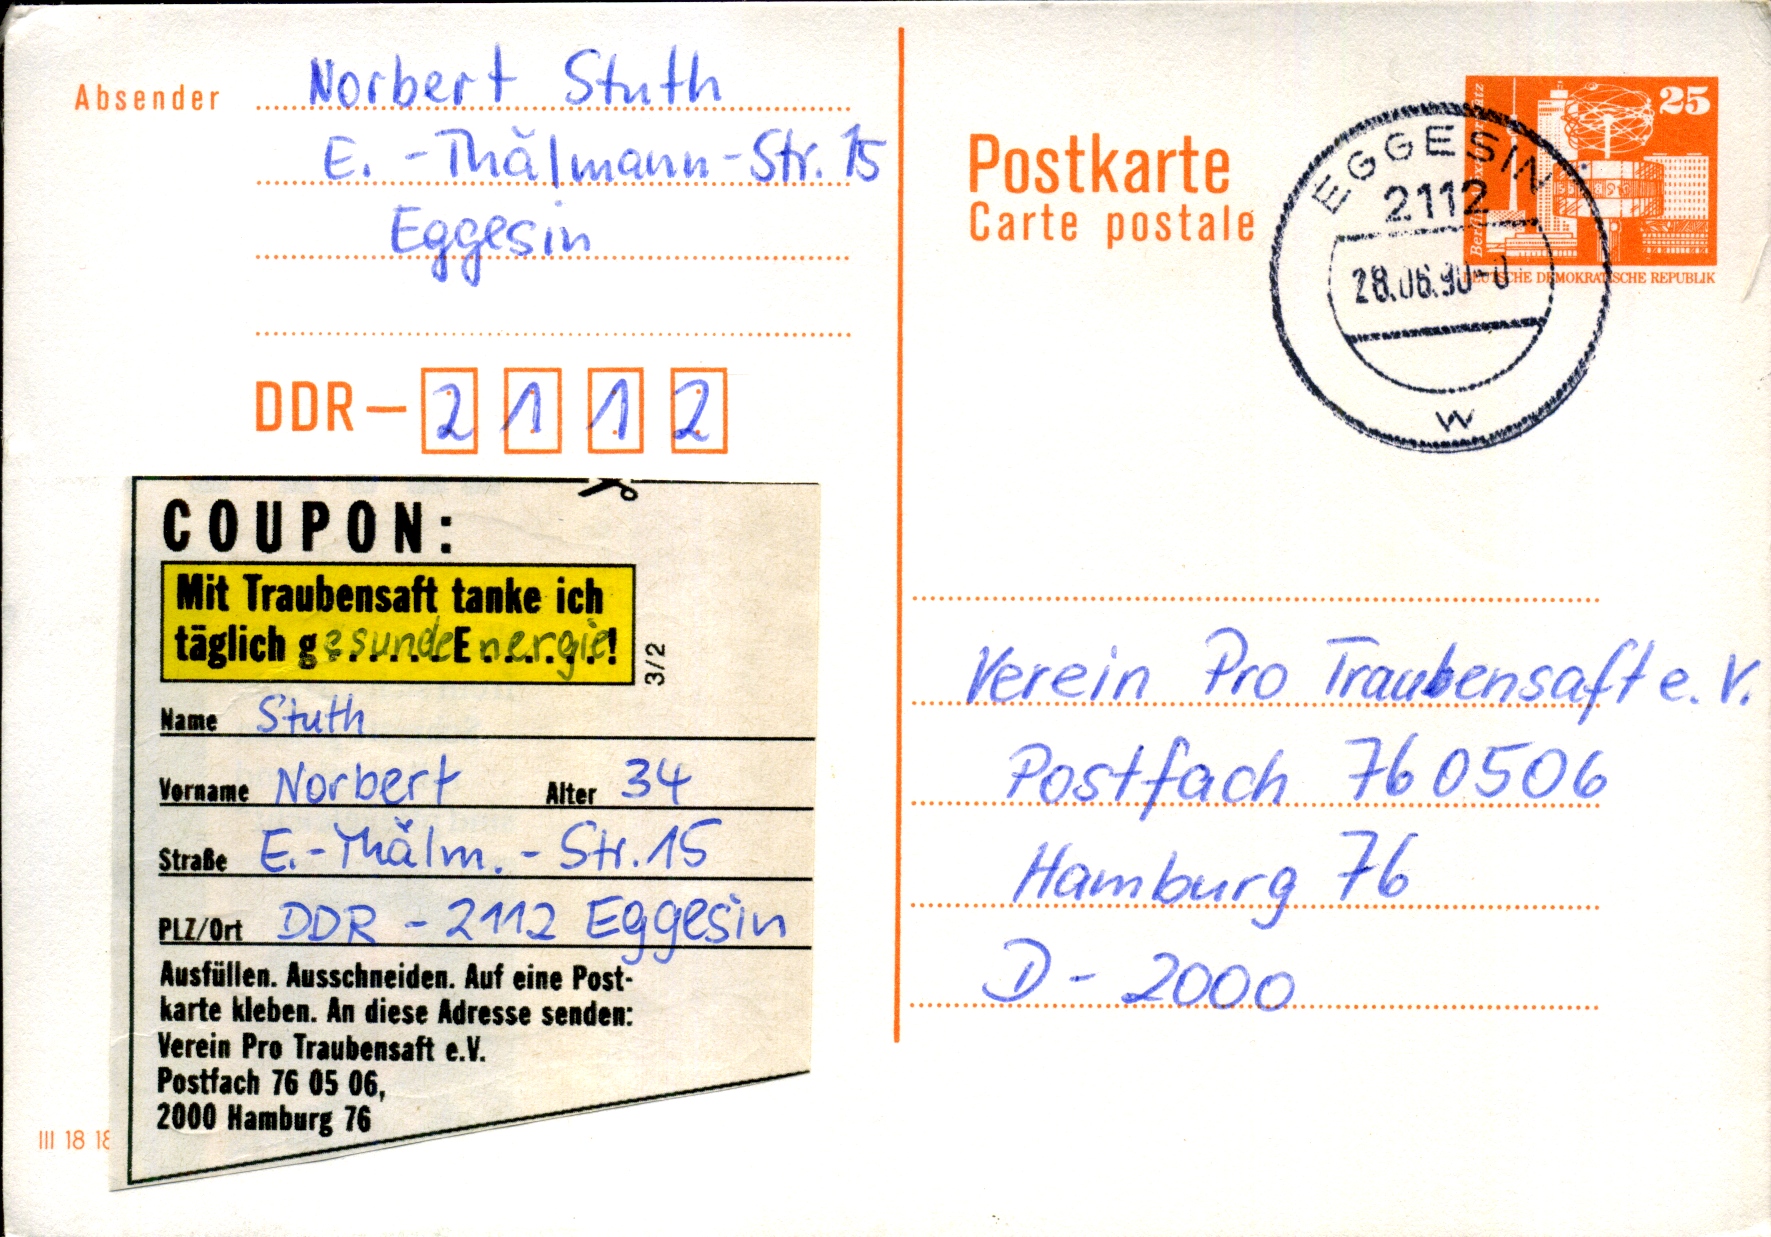 Absender Norbert Stuth
E.-Thälmann-Str. 15
Eggesin
DDR— 2 1 1 2
COUPON:
Mit Traubensaft tanke ich
täglich gesunde Energie!
3/2
Name Stuth
Vorname Norbert Alter 34
Straße E.-Thälm.-Str. 15
PLZ/Ort DDR - 2112 Eggesin
Ausfüllen. Ausschneiden. Auf eine Post-
karte kleben. An diese Adresse senden:
Verein Pro Traubensaft e.V.
Postfach 76 05 06,
2000 Hamburg 76
III 18 18
Postkarte
Carte postale
25
DEUTSCHE DEMOKRATISCHE REPUBLIK
EGGESIN
2112
28.06.90-0
w
Verein Pro Traubensaft e. V.
Postfach 760506
Hamburg 76
D - 2000